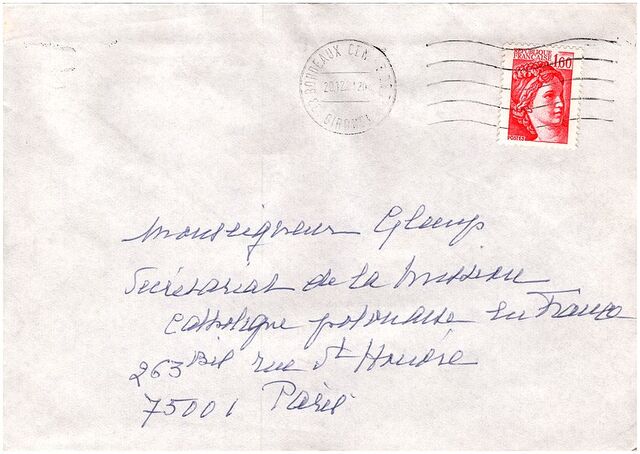 BORDEAUX
GIRONDE
REPUBLIQUE
FRANCAISE
1,60
POSTES
Monseigneur Glemp
Secrétariat de la mission
catholique polonaise en France
263 bis rue St Honoré
75001 Paris